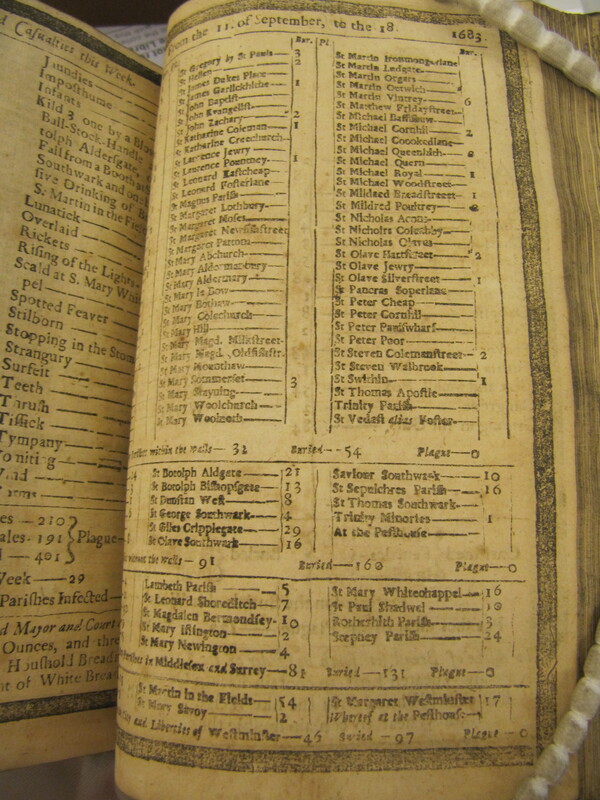 d Casualties this Week.
Jaundies
Imposthume
Infants
Kild 3 one by a Blow
Ball-Stock-Handle
tolph Aldersgate,
Fall from a Booth at
Southwark and on
sive Drinking of
S. Martin in the Fie
Lunatick
Overlaid
Rickets
Rising of the Lights
Scald at S. Mary Whi
pel
Spotted Feaver
Stilborn
Stopping in the Stom
Strangury
Surfeit
Teeth
Thrush
Tissick
Tympany
Vomiting
Wind
es — 210
ales — 191 Plague
l — 401
Week — 29
Parishes Infected
d Mayor and Court
Ounces, and thre
Houshold Bread
nt of White Brea
from the 11. of September, to the 18. 1683.
Bur.
St Gregory by St Pauls — 3
St Hellen — 2
St James Dukes Place
St James Garlickhithe — 1
St John Baptist
St John Evangelist
St John Zachary — 2
St Katharine Coleman — 1
St Katherine Creechurch
St Larence Jewry
St Laurence Pountney — 1
St Leonard Eastcheap
St Leonard Fosterlane
St Magnus Parish
St Margaret Lothbury
St Margaret Moses
St Margaret Newfishstreet
St Margaret Pattons
St Mary Abchurch
St Mary Aldermanbury
St Mary Aldermary
St Mary le Bow
St Mary Bothaw
St Mary Colechurch
St Mary Hill
St Mary Magd. Milkstreet
St Mary Magd. Oldfishstr.
St Mary Mounthaw
St Mary Sommerset — 3
St Mary Stayning
St Mary Woolchurch
St Mary Woolnoth
Bur.
St Martin Ironmongerlane
St Martin Ludgate
St Martin Orgars
St Martin Outwich
St Martin Vintrey — 6
St Matthew Fridaystreet
St Michael Bassishaw
St Michael Cornhil — 2
St Michael Crookedlane
St Michael Queenhith
St Michael Quern
St Michael Royal — 1
St Michael Woodstreet
St Mildred Breadstreet — 1
St Mildred Poultrey
St Nicholas Acons
St Nicholas Coleabby
St Nicholas Olaves
St Olave Hartstreet — 2
St Olave Jewry
St Olave Silverstreet — 1
St Pancras Soperlane
St Peter Cheap
St Peter Cornhil
St Peter Paulswharf
St Peter Poor
St Steven Colemanstreet — 2
St Steven Walbrook
St Swithin — 1
St Thomas Apostle
Trinity Parish
St Vedast alias Foster
within the walls — 32 Buried — 54 Plague — 0
St Botolph Aldgate — 21
St Botolph Bishopsgate — 13
St Dunstan West — 8
St George Southwark — 4
St Giles Cripplegate — 29
St Olave Southwark — 16
Saviour Southwark — 10
St Sepulchres Parish — 16
St Thomas Southwark
Trinity Minories — 1
At the Pesthouse
without the walls — 91 Buried — 160 Plague — 0
Lambeth Parish — 5
St Leonard Shoreditch — 7
St Magdalen Bermondsey — 10
St Mary Islington — 2
St Mary Newington — 4
St Mary Whitechappel — 16
St Paul Shadwel — 10
Rotherhith Parish — 3
Stepney Parish — 24
in Middlesex and Surrey — 81 Buried — 131 Plague — 0
St Martin in the Fields — 54
St Mary Savoy — 2
St Margaret Westminster 17
Whereof at the Pesthouse
and Liberties of Westminster — 46 Buried — 97 Plague — 0